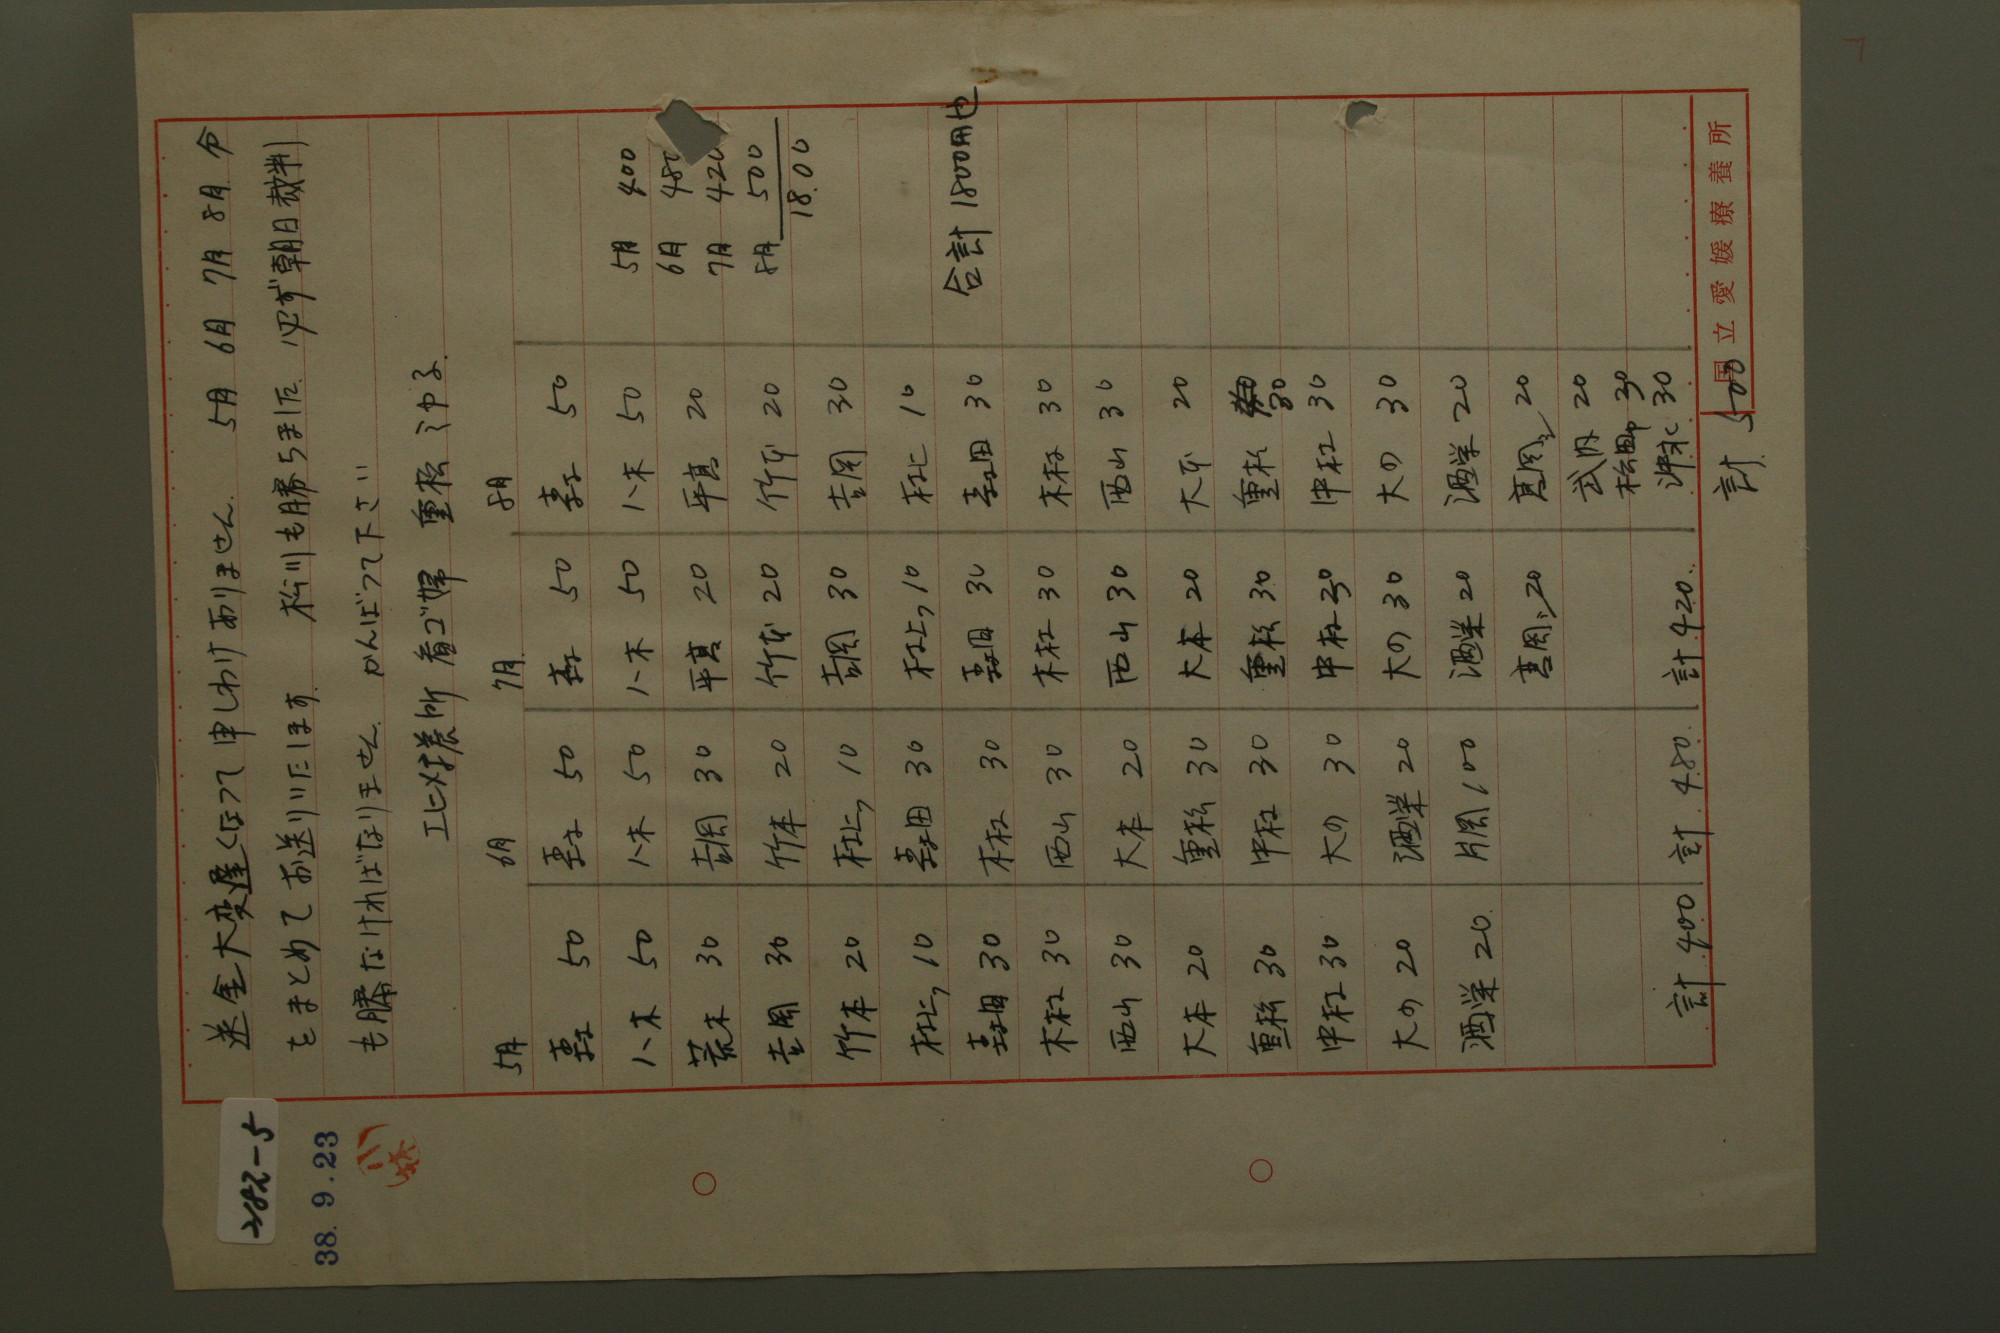 2182-5
38. 9. 23
送金大変遅くなって申しわけありません. 5月 6月 7月 8月 分
をまとめてお送りいたします. 松川も勝ちました. 必ず朝日裁判
も勝たなければなりません. がんばって下さい
エヒメ療養所 看ゴ婦 重松 ミヤ子.
5月 6月 7月 8月
森 50
八木 50
荒木 30
吉岡 30
竹本 20
村上 10
森田 30
木村 30
西山 30
大本 20
重松 30
中村 30
大の 20
酒栄 20.
計 400
森 50
八木 50
吉岡 30
竹本 20
村上 10
森田 30
木村 30
西山 30
大本 20
重松 30
中村 30
大の 30
酒栄 20
片岡 100
計 480.
森 50
八木 50
平真 20
竹本 20
吉岡 30
村上 10
森田 30
木村 30
西山 30
大本 20
重松 30
中村 30
大の 30
酒栄 20
20
計 420.
森 50
八木 50
平真 20
竹本 20
吉岡 30
村上 10
森田 30
木村 30
西山 30
大本 20
重松 30
中村 30
大の 30
酒栄 20
20
武内 20
松田 30
清水 30
計 500
5月 400
6月 480
7月 420
8月 500
18.00
合計 1800円也
国立愛媛療養所